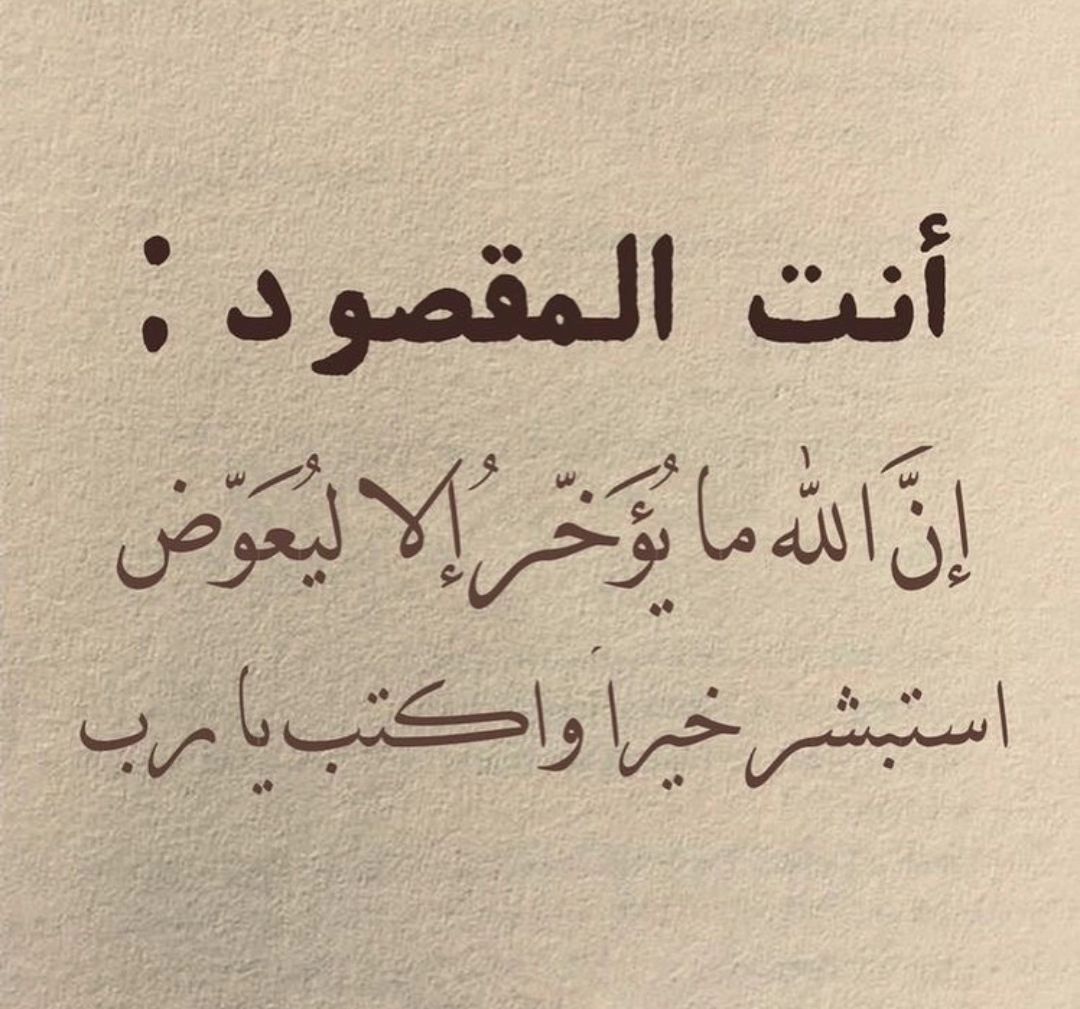 أنت المقصود :
إنَّ اللّٰه ما يُؤَخّرُ إلا ليُعَوّض
استبشر خيراً واكتب يا رب